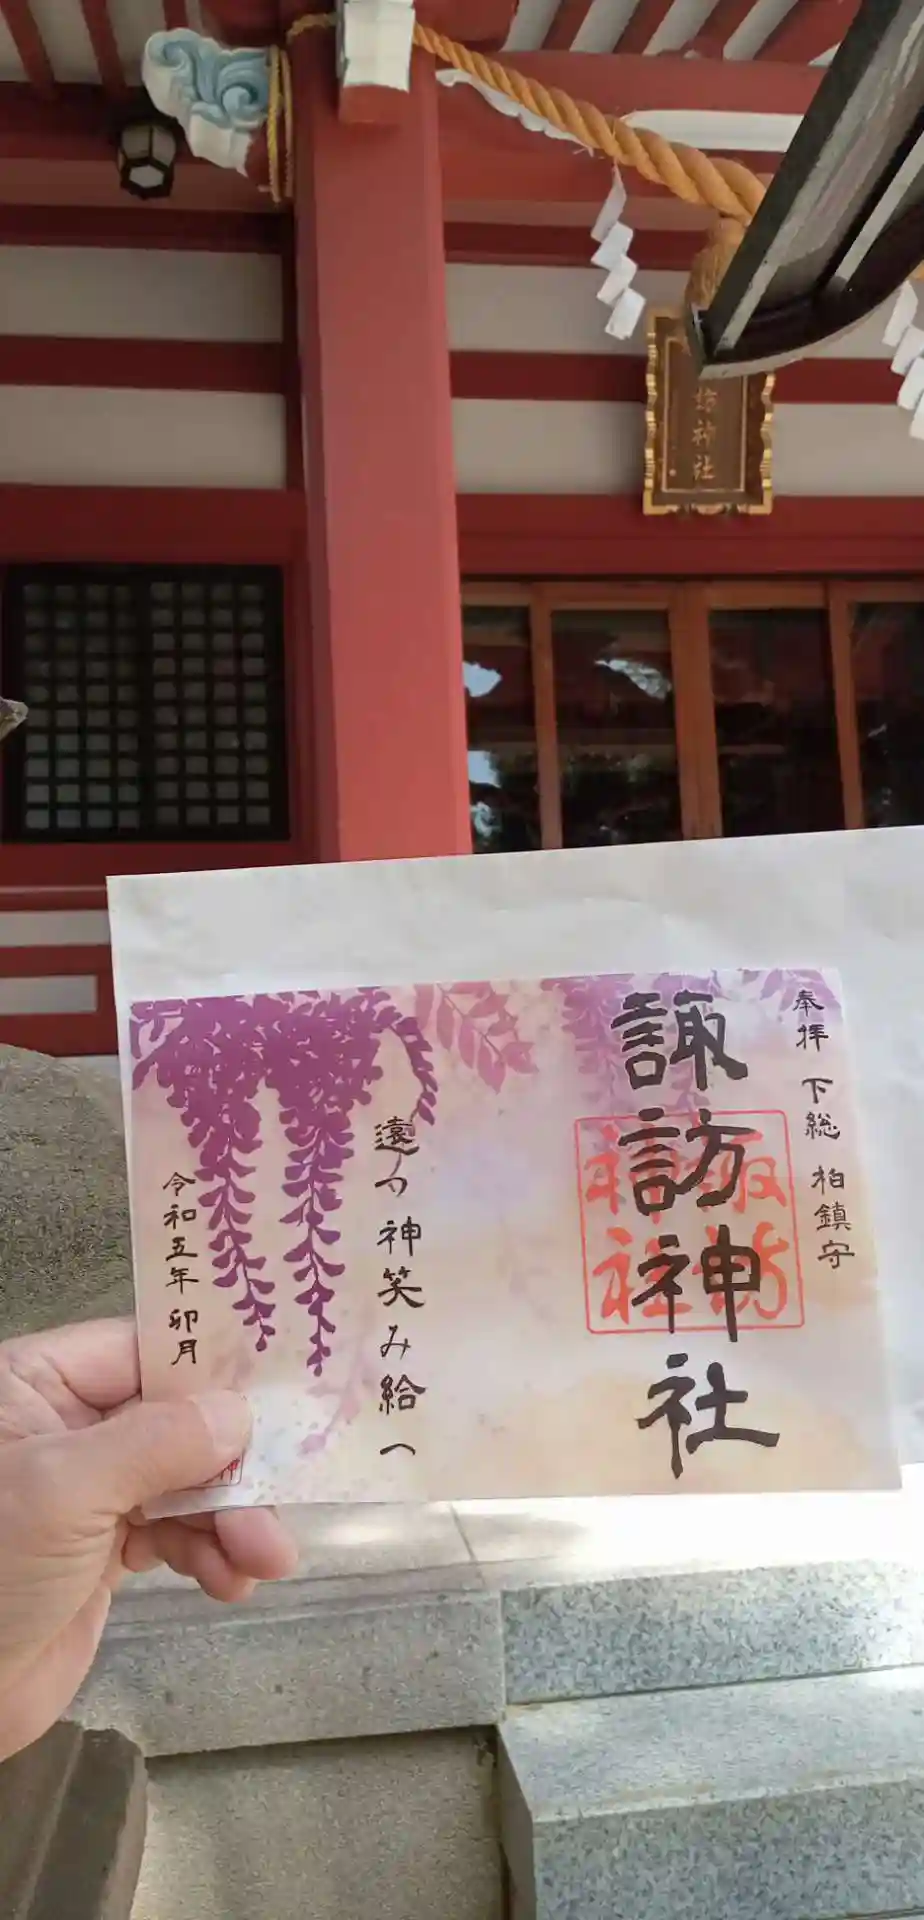 訪神社
奉拝 下総 柏鎮守
諏訪神社
諏訪
神社
遠つ神笑み給へ
令和五年 卯月
神